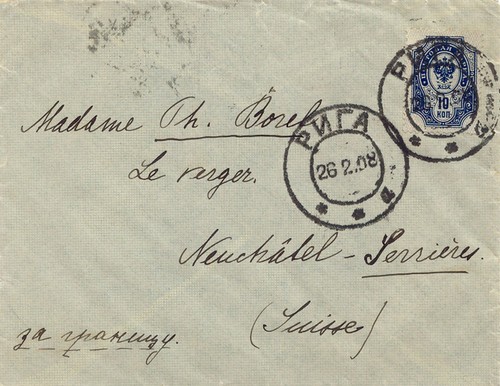 РИГА
10
КОП
Madame Ph. Borel
РИГА
26 2.08
Le verger.
Neuchâtel - Serrières.
(Suisse)
за границу.